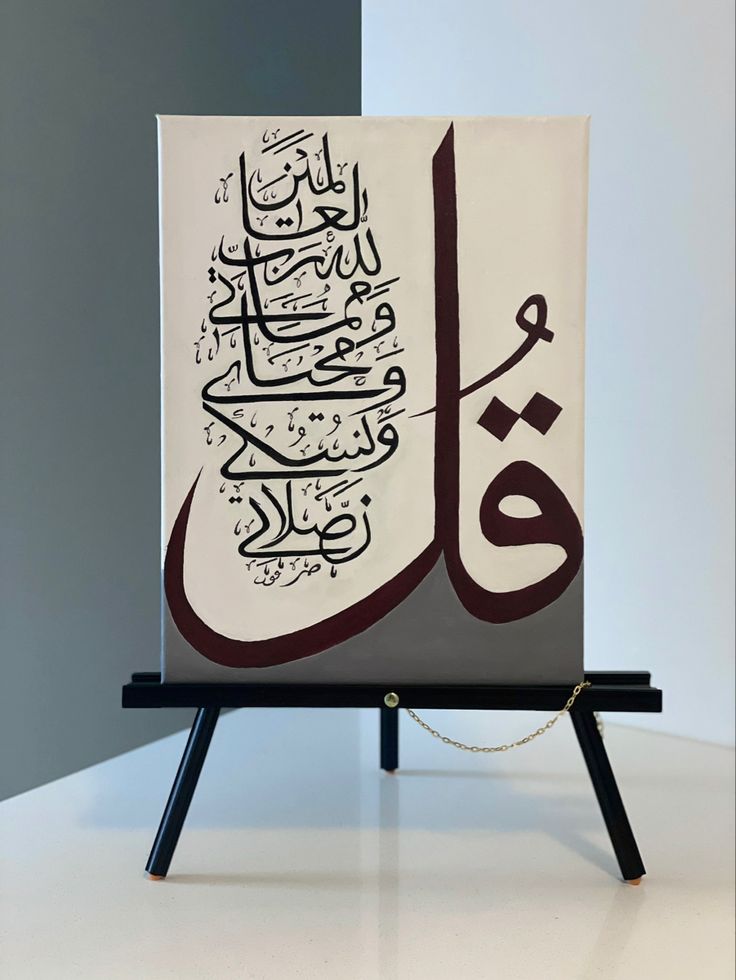 قُل
إن صلاتي
ونسكي
ومحياي
ومماتي
لله رب
العالمين